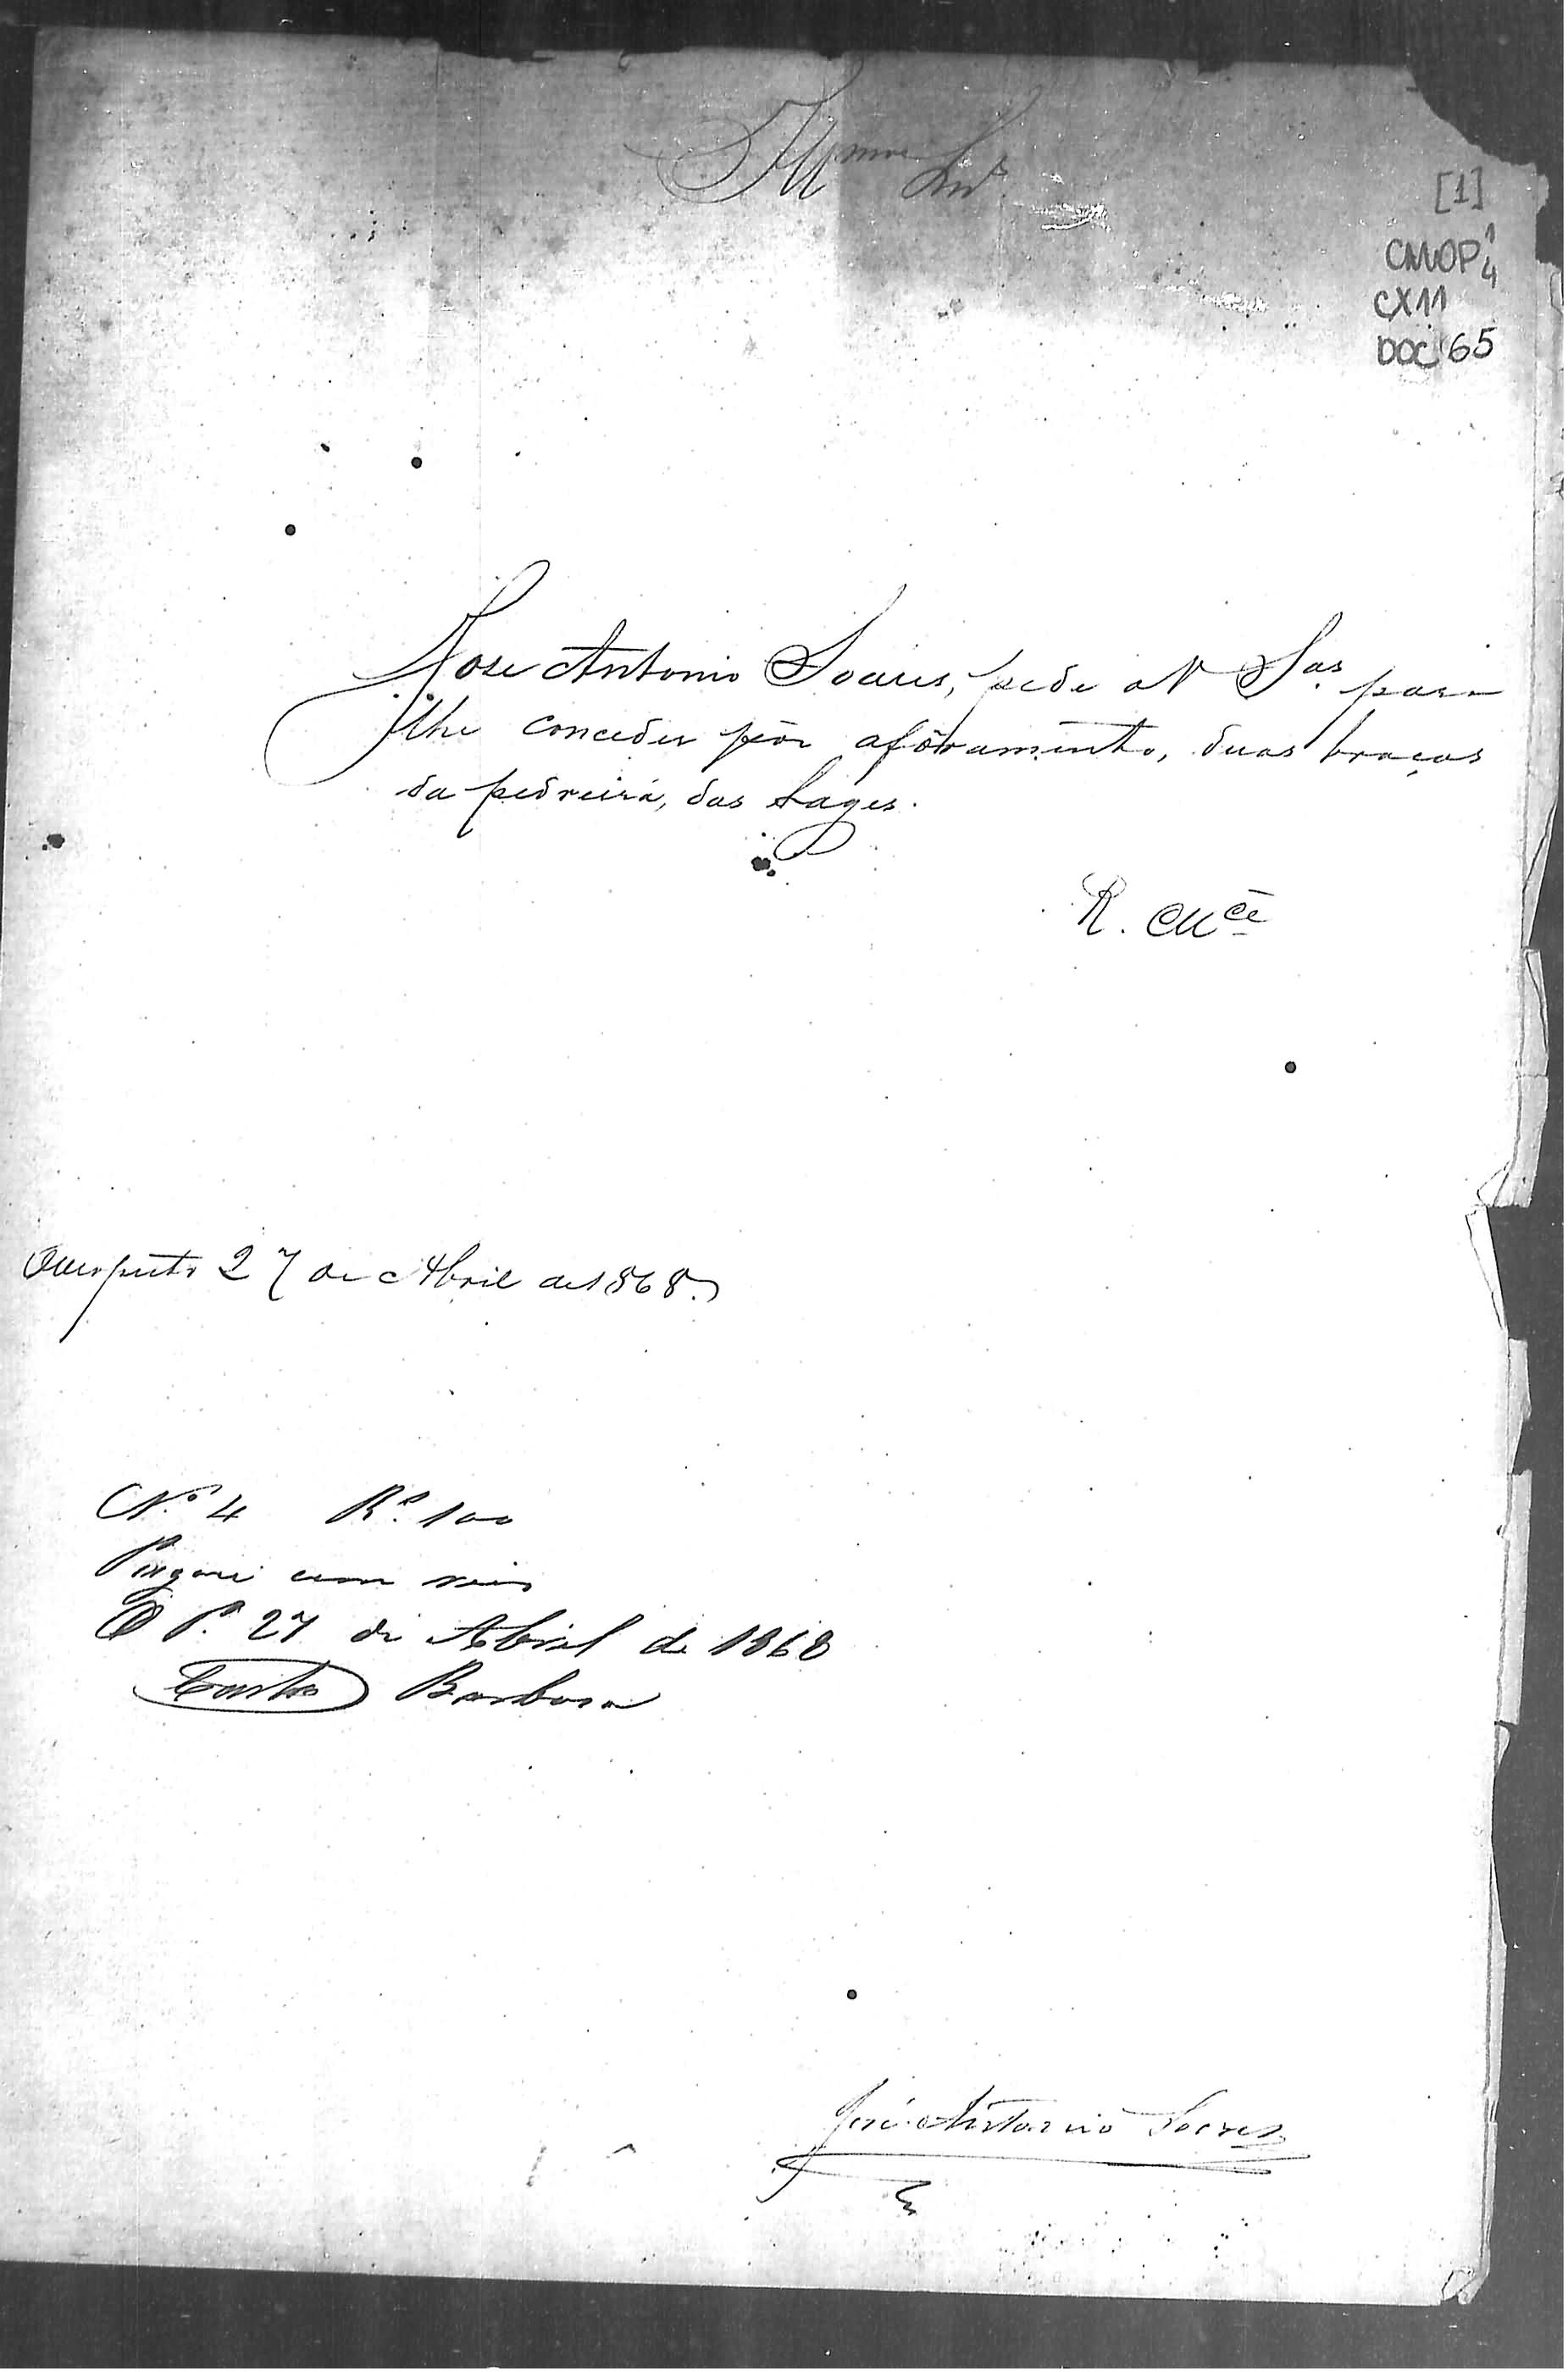 Illmos Snrs
[1]
CMOP 1/4
CX11
DOC 65
José Antonio Soares, pede a V Sas para
lhe conceder pôr afôramento, duas braças
da pedreira, das Lages.
R. Mce
Ouropreto 27 de Abril de 1868.
No 4 Rs. 100
Pagou cem reis
O P. 27 de Abril de 1868
Barbosa
José Antonio Soares